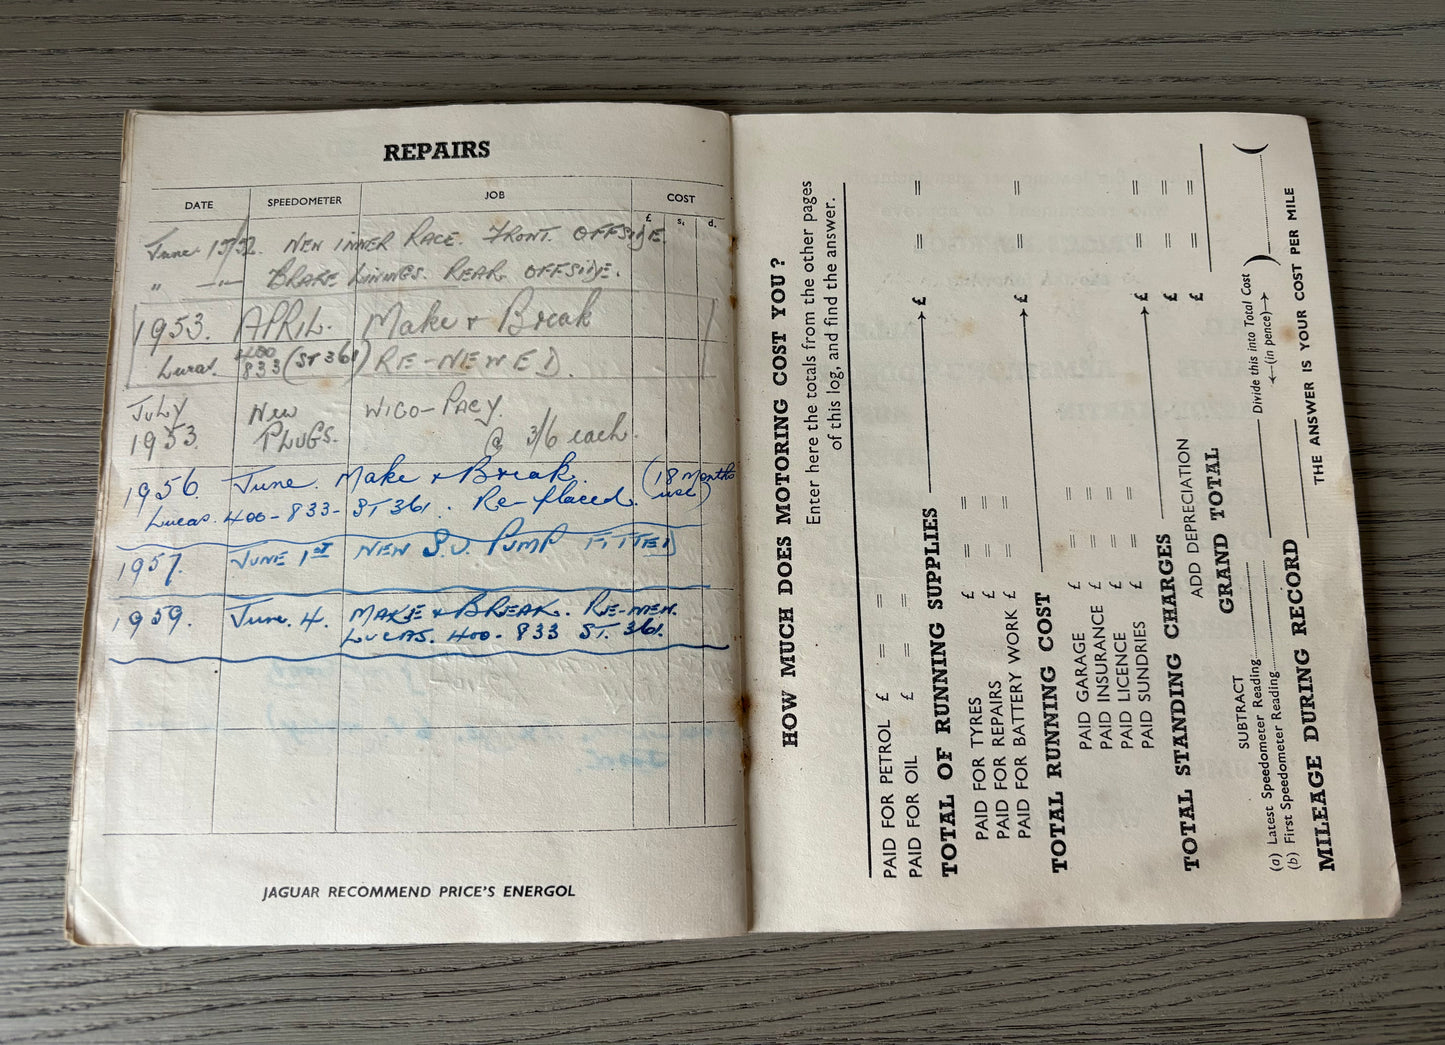 REPAIRS
DATE SPEEDOMETER JOB COST
£ s. d.
June 15/52. NEW INNER RACE. FRONT. OFFSIDE.
" —"— BRAKE LININGS. REAR OFFSIDE.
1953. APRIL. Make & Break
Lucas. 400 833 (ST 361) RE-NEWED.
July New WICO-PACY.
1953. PLUGS. @ 3/6 each.
1956. June. Make & Break. (18 months use)
Lucas. 400-833- ST361. Re-placed.
1957. JUNE 1ST NEW S.U. PUMP FITTED
1959. June. 4. MAKE & BREAK. RE-NEW.
LUCAS. 400-833 ST. 361.
JAGUAR RECOMMEND PRICE'S ENERGOL
HOW MUCH DOES MOTORING COST YOU?
Enter here the totals from the other pages
of this log, and find the answer.
PAID FOR PETROL £ = =
PAID FOR OIL £ = =
TOTAL OF RUNNING SUPPLIES → £ = =
PAID FOR TYRES £ = =
PAID FOR REPAIRS £ = =
PAID FOR BATTERY WORK £ = =
TOTAL RUNNING COST → £ = =
PAID GARAGE £ = =
PAID INSURANCE £ = =
PAID LICENCE £ = =
PAID SUNDRIES £ = =
TOTAL STANDING CHARGES → £ = =
ADD DEPRECIATION £ = =
GRAND TOTAL £ = =
SUBTRACT
(a) Latest Speedometer Reading
(b) First Speedometer Reading
Divide this into Total Cost
←(in pence)→
( )
MILEAGE DURING RECORD
THE ANSWER IS YOUR COST PER MILE